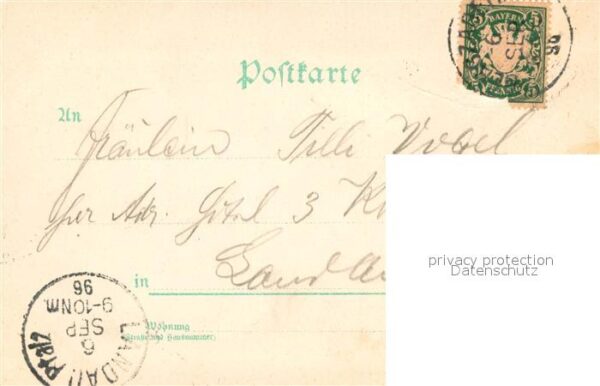 BAYERN
PFENNIG
96
Postkarte
An
Fräulein Tilli Vogel
per Adr. Hôtel 3
privacy protection
Datenschutz
in Landau
Wohnung
(Straße und Hausnummer)
LANDAU Pfalz
6
SEP
9-10 NM.
96